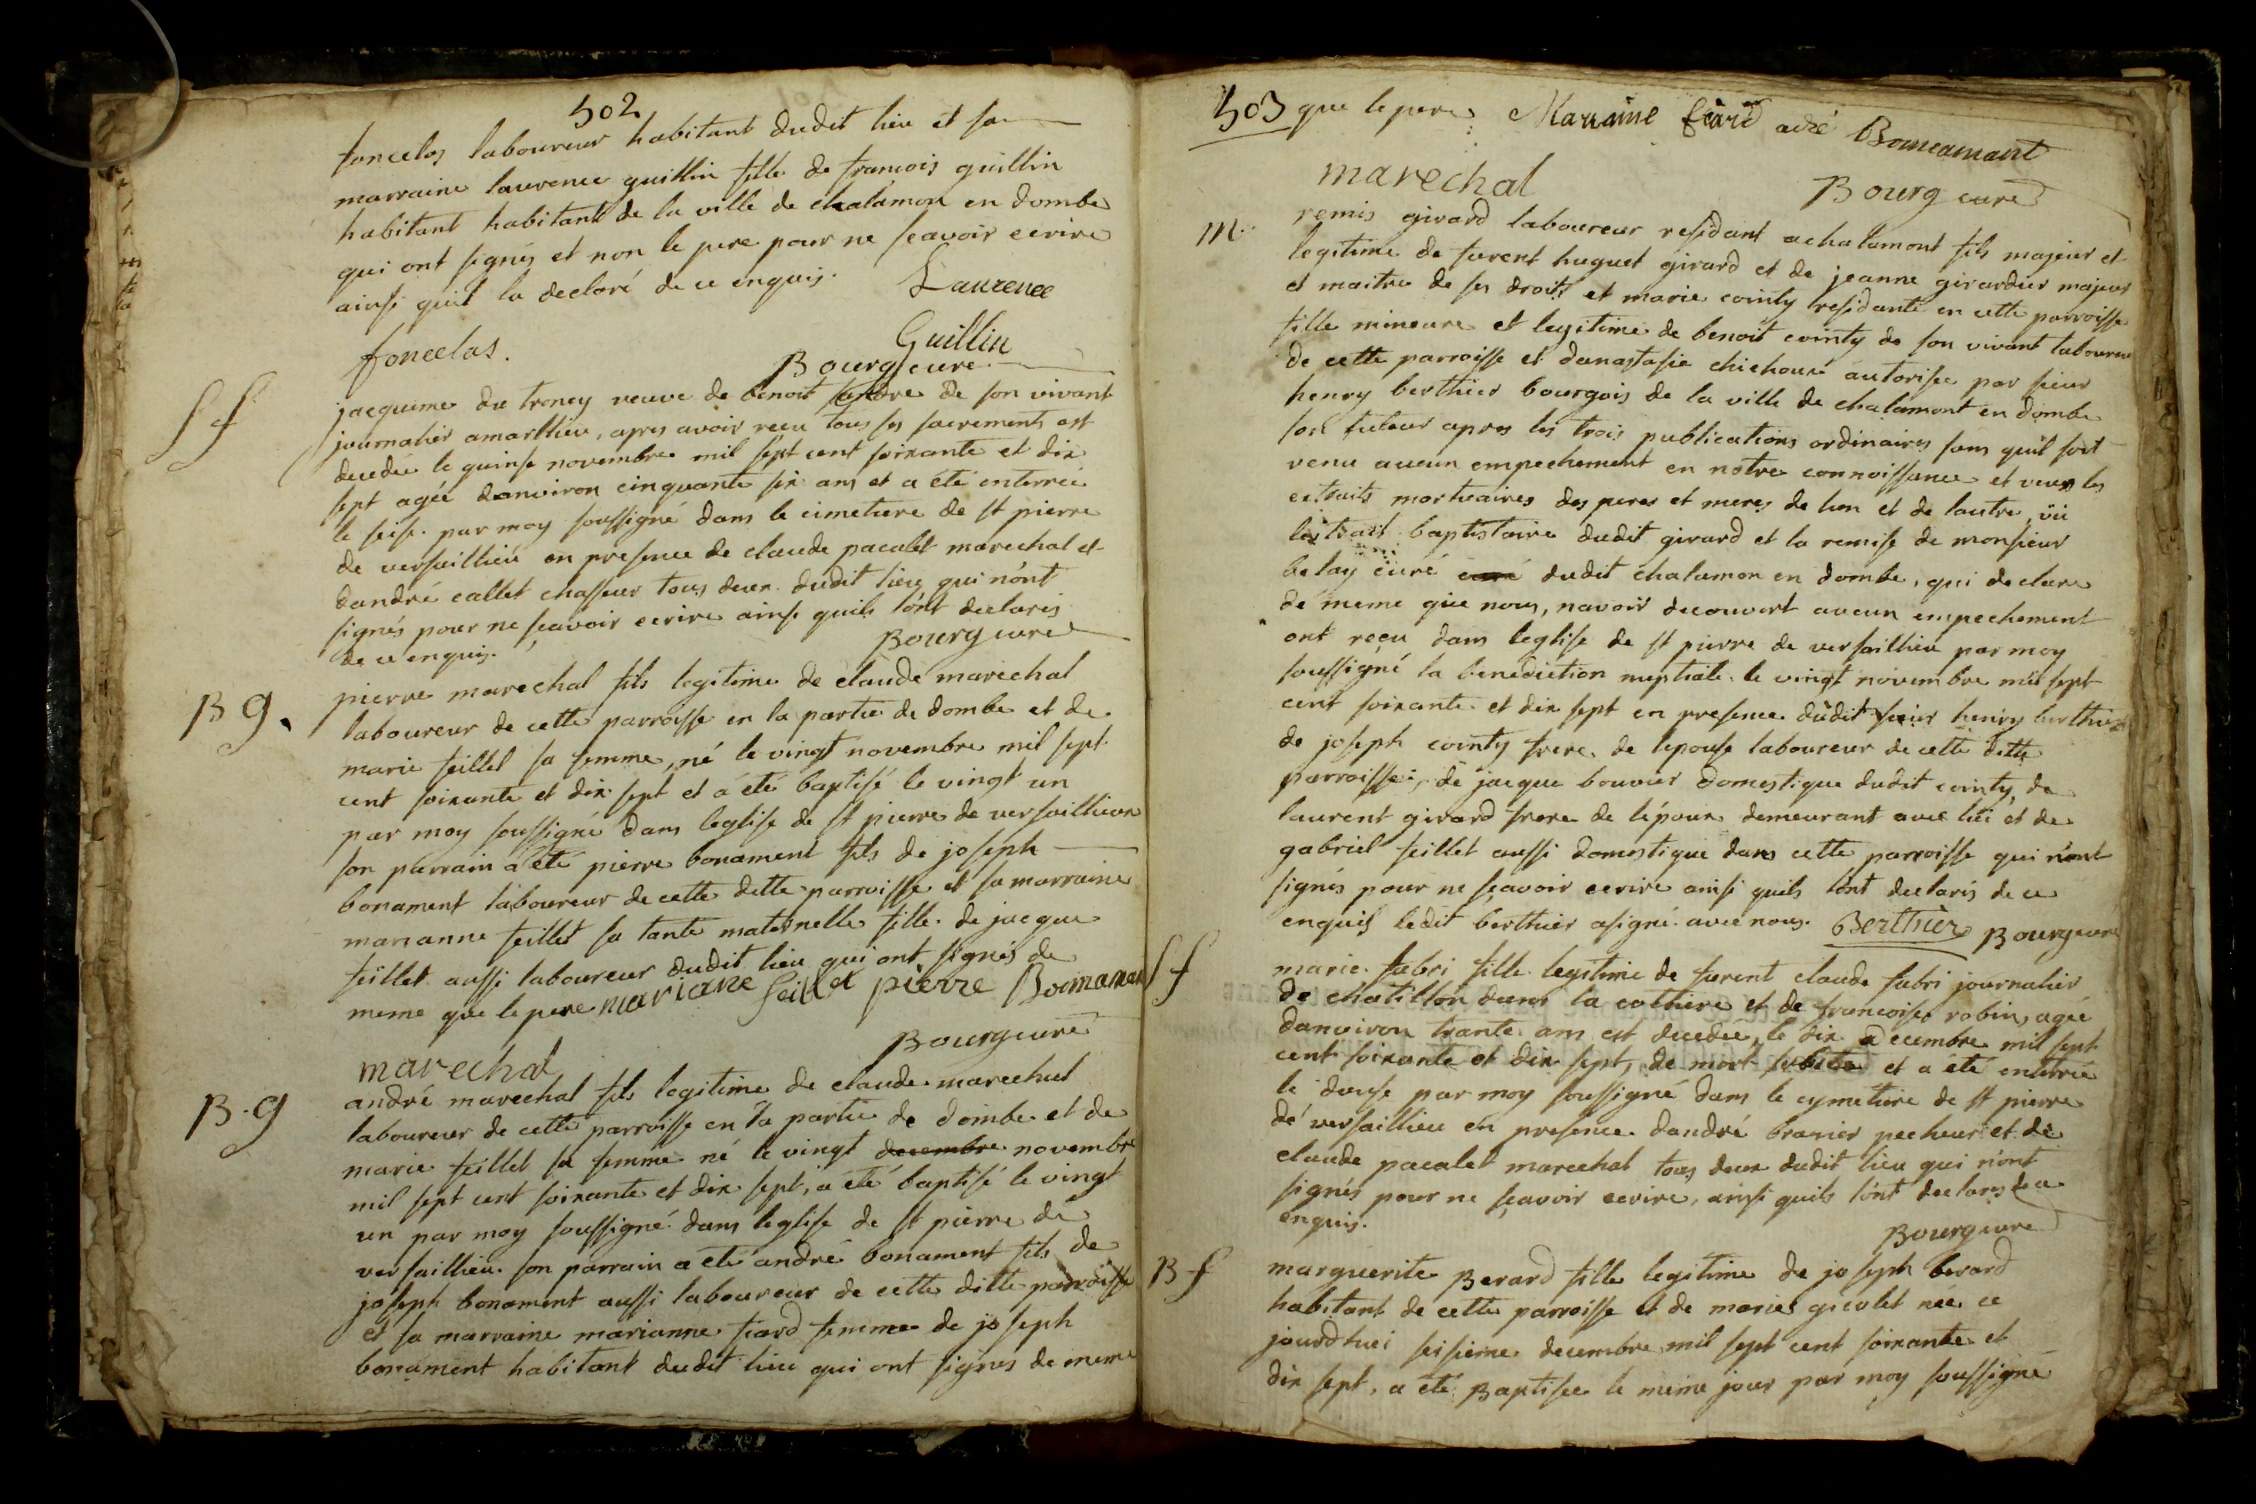 502
foncelas laboureur habitant dudit lieu et sa
marraine laurence guillin fille de francois guillin
habitant habitant de la ville de chalamon en dombe
qui ont signés et non le pere pour ne scavoir ecrire
ainsi quil la declaré de ce enquis. Laurence
foncelas. Guillin
Bourg curé
Sf
jacquime du troncy veuve de benoit de son vivant
journalier amarllieu, apres avoir recu tous ses sacrements est
decedée le quinse novembre mil sept cent soixante et dix
sept agée danviron cinquante six ans et a été enterrée
le seise par moy soussigné dans le cimetiere de st pierre
de versaillieu en presence de claude pacalet marechal et
dandré callet chasseur tous deux dudit lieu qui n'ont
signés pour ne scavoir ecrire ainsi quils l'ont declarés
de ce enquis. Bourg curé
B g.
pierre marechal fils legitime de claude marechal
laboureur de cette parroisse en la partie de dombe et de
marie feillet sa femme, né le vingt novembre mil sept
cent soixante et dix sept et a été baptisé le vingt un
par moy soussigné dans leglise de st pierre de versaillieux
son parrain a été pierre bonament fils de joseph
bonament laboureur de cette ditte parroisse et sa marraine
marianne feillet sa tante maternelle fille de jacque
feillet aussi laboureur dudit lieu qui ont signés de
meme que le pere mariane feillet pierre Bonnaman
marechal Bourg curé
B. g
andré marechal fils legitime de claude marechal
laboureur de cette parroisse en la partie de dombe et de
marie feillet sa femme né le vingt decembre novembre
mil sept cent soixante et dix sept, a été baptisé le vingt
un par moy soussigné dans leglise de st pierre de
versaillieu son parrain a été andré bonament fils de
joseph bonament aussi laboureur de cette ditte parroisse
et sa marraine marianne fiard femme de joseph
bonament habitant dudit lieu qui ont signés de meme
503 que le pere. Mariaine fiard Boneamant
marechal Bourg curé
m.
remis girard laboureur residant a chalamont fils majeur et
legitime de furent huguet girard et de jeanne girardier majeur
et maitre de ses droits et marie cointy residante en cette parroisse
fille mineure et legitime de benoit cointy de son vivant laboureur
de cette parroisse et danastasie autorisée par sieur
henry berthier bourgois de la ville de chalamont en dombe
son tuteur apres les trois publications ordinaires sans quil soit
venu aucun empechement en notre connoissance et veux les
extraits mortuaires des peres et meres de lun et de lautre, vü
lextrait baptistaire dudit girard et la remise de monsieur
belay curé curé dudit chalamon en dombe, qui declare
de meme que nous, navoir decouvert aucun empechement
ont reçu dans leglise de st pierre de versaillieu par moy
soussigné la benediction nuptiale le vingt novembre mil sept
cent soixante et dix sept en presence dudit sieur henry berthier
de joseph cointy frere de lepouse laboureur de cette ditte
parroisse, de jacque bouvier domestique dudit cointy, de
laurent girard frere de lépoux demeurant avec lui et de
gabriel feillet aussi domestique dans cette parroisse qui n'ont
signés pour ne sçavoir ecrire ainsi quils l'ont declarés de ce
enquis ledit berthier a signé avec nous. Berthier Bourg curé
Sf
marie fabri fille legitime de furent claude fabri journalier
de chatillon dans la et de francoise robin, agée
danviron trante ans est decedée, le dix decembre mil sept
cent soixante et dix sept, de mort subite et a été enterrée
le douse par moy soussigné dans le cymetiere de st pierre
de versaillieu en presence dandré brasier pecheur et de
claude pacalet marechal tous deux dudit lieu qui n'ont
signés pour ne sçavoir ecrire, ainsi quils l'ont declarés de ce
enquis. Bourg curé
B f
marguerite Berard fille legitime de joseph berard
habitant de cette parroisse et de marie gicolet nee ce
jourdhui seisieme decembre mil sept cent soixante et
dix sept, a été Baptisee le meme jour par moy soussigné